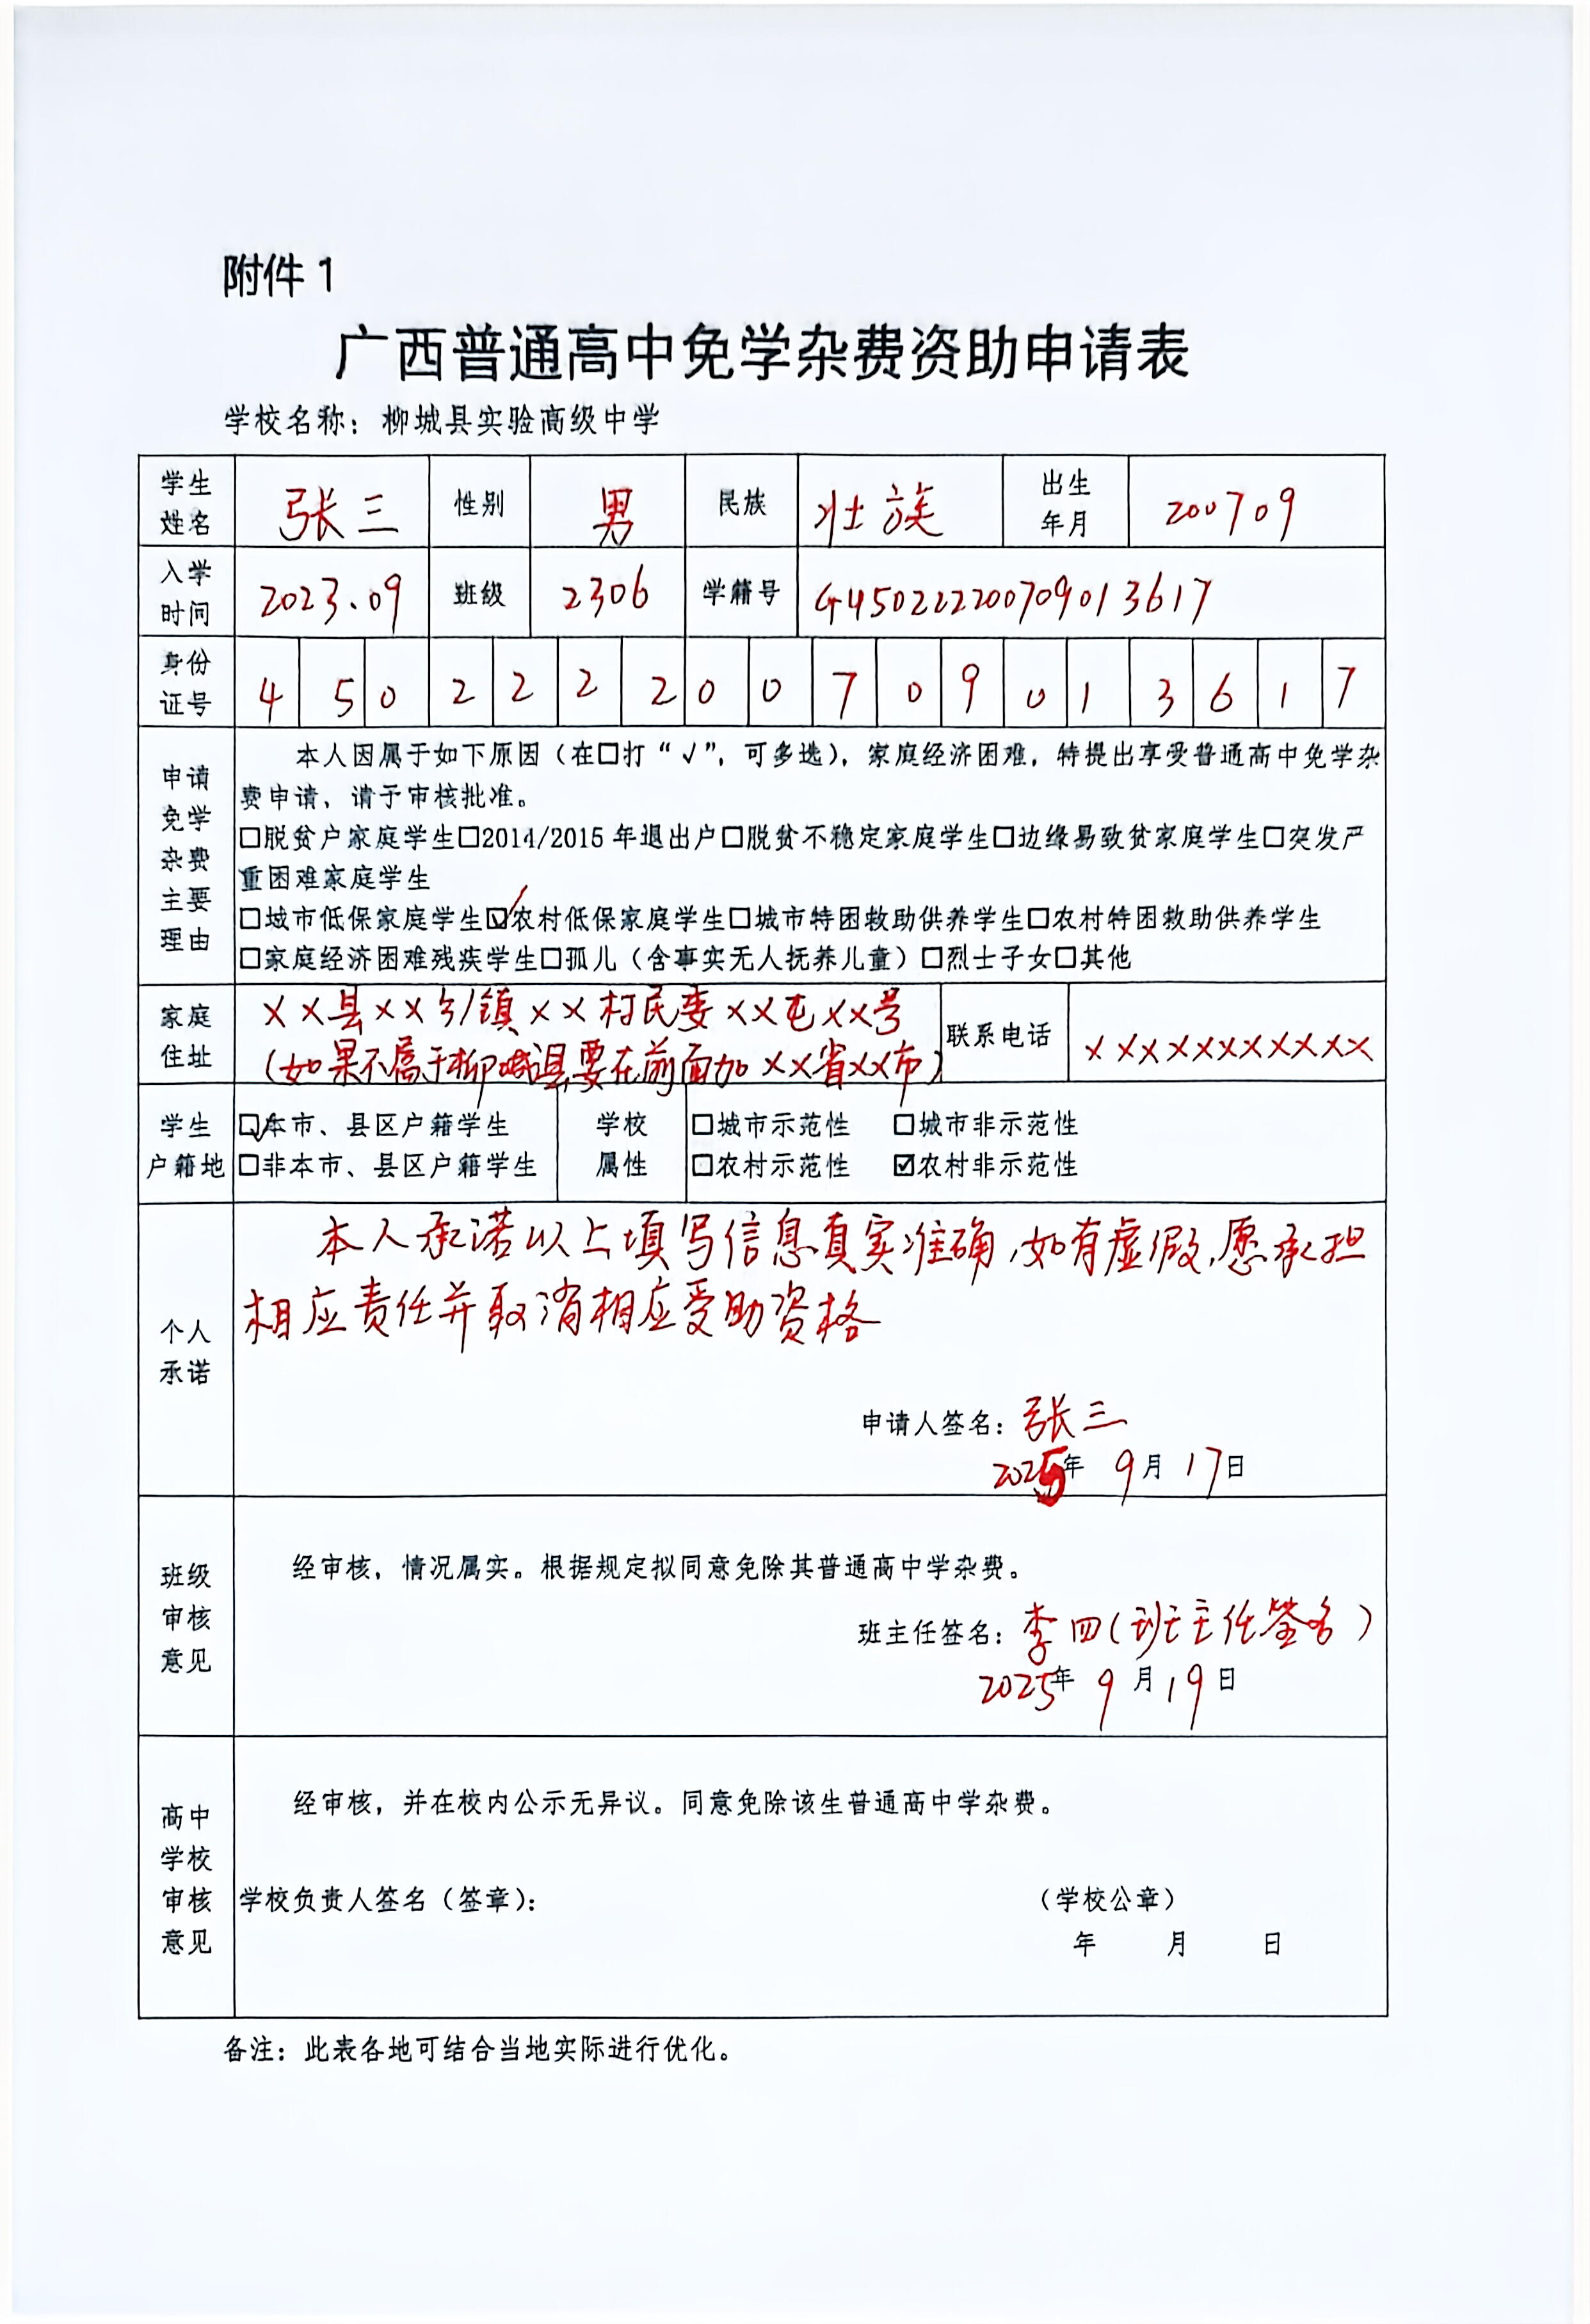 附件 1
广西普通高中免学杂费资助申请表
学校名称：柳城县实验高级中学
学生姓名 张三 性别 男 民族 壮族 出生年月 200709
入学时间 2023.09 班级 2306 学籍号 G450222200709013617
身份证号 4 5 0 2 2 2 2 0 0 7 0 9 0 1 3 6 1 7
申请免学杂费主要理由
本人因属于如下原因（在□打“√”，可多选），家庭经济困难，特提出享受普通高中免学杂
费申请，请于审核批准。
□脱贫户家庭学生□2014/2015 年退出户□脱贫不稳定家庭学生□边缘易致贫家庭学生□突发严
重困难家庭学生
□城市低保家庭学生☑农村低保家庭学生□城市特困救助供养学生□农村特困救助供养学生
□家庭经济困难残疾学生□孤儿（含事实无人抚养儿童）□烈士子女□其他
家庭住址 ××县××乡/镇××村民委××屯××号
（如果不属于柳城县要在前面加××省××市） 联系电话 ×××××××××××
学生户籍地 ☑本市、县区户籍学生 学校属性 □城市示范性 □城市非示范性
□非本市、县区户籍学生 □农村示范性 ☑农村非示范性
个人承诺
本人承诺以上填写信息真实准确，如有虚假，愿承担
相应责任并取消相应受助资格
申请人签名：张三
2025年 9月 17日
班级审核意见
经审核，情况属实。根据规定拟同意免除其普通高中学杂费。
班主任签名：李四（班主任签名）
2025年 9月 19日
高中学校审核意见
经审核，并在校内公示无异议。同意免除该生普通高中学杂费。
学校负责人签名（签章）： （学校公章）
年 月 日
备注：此表各地可结合当地实际进行优化。